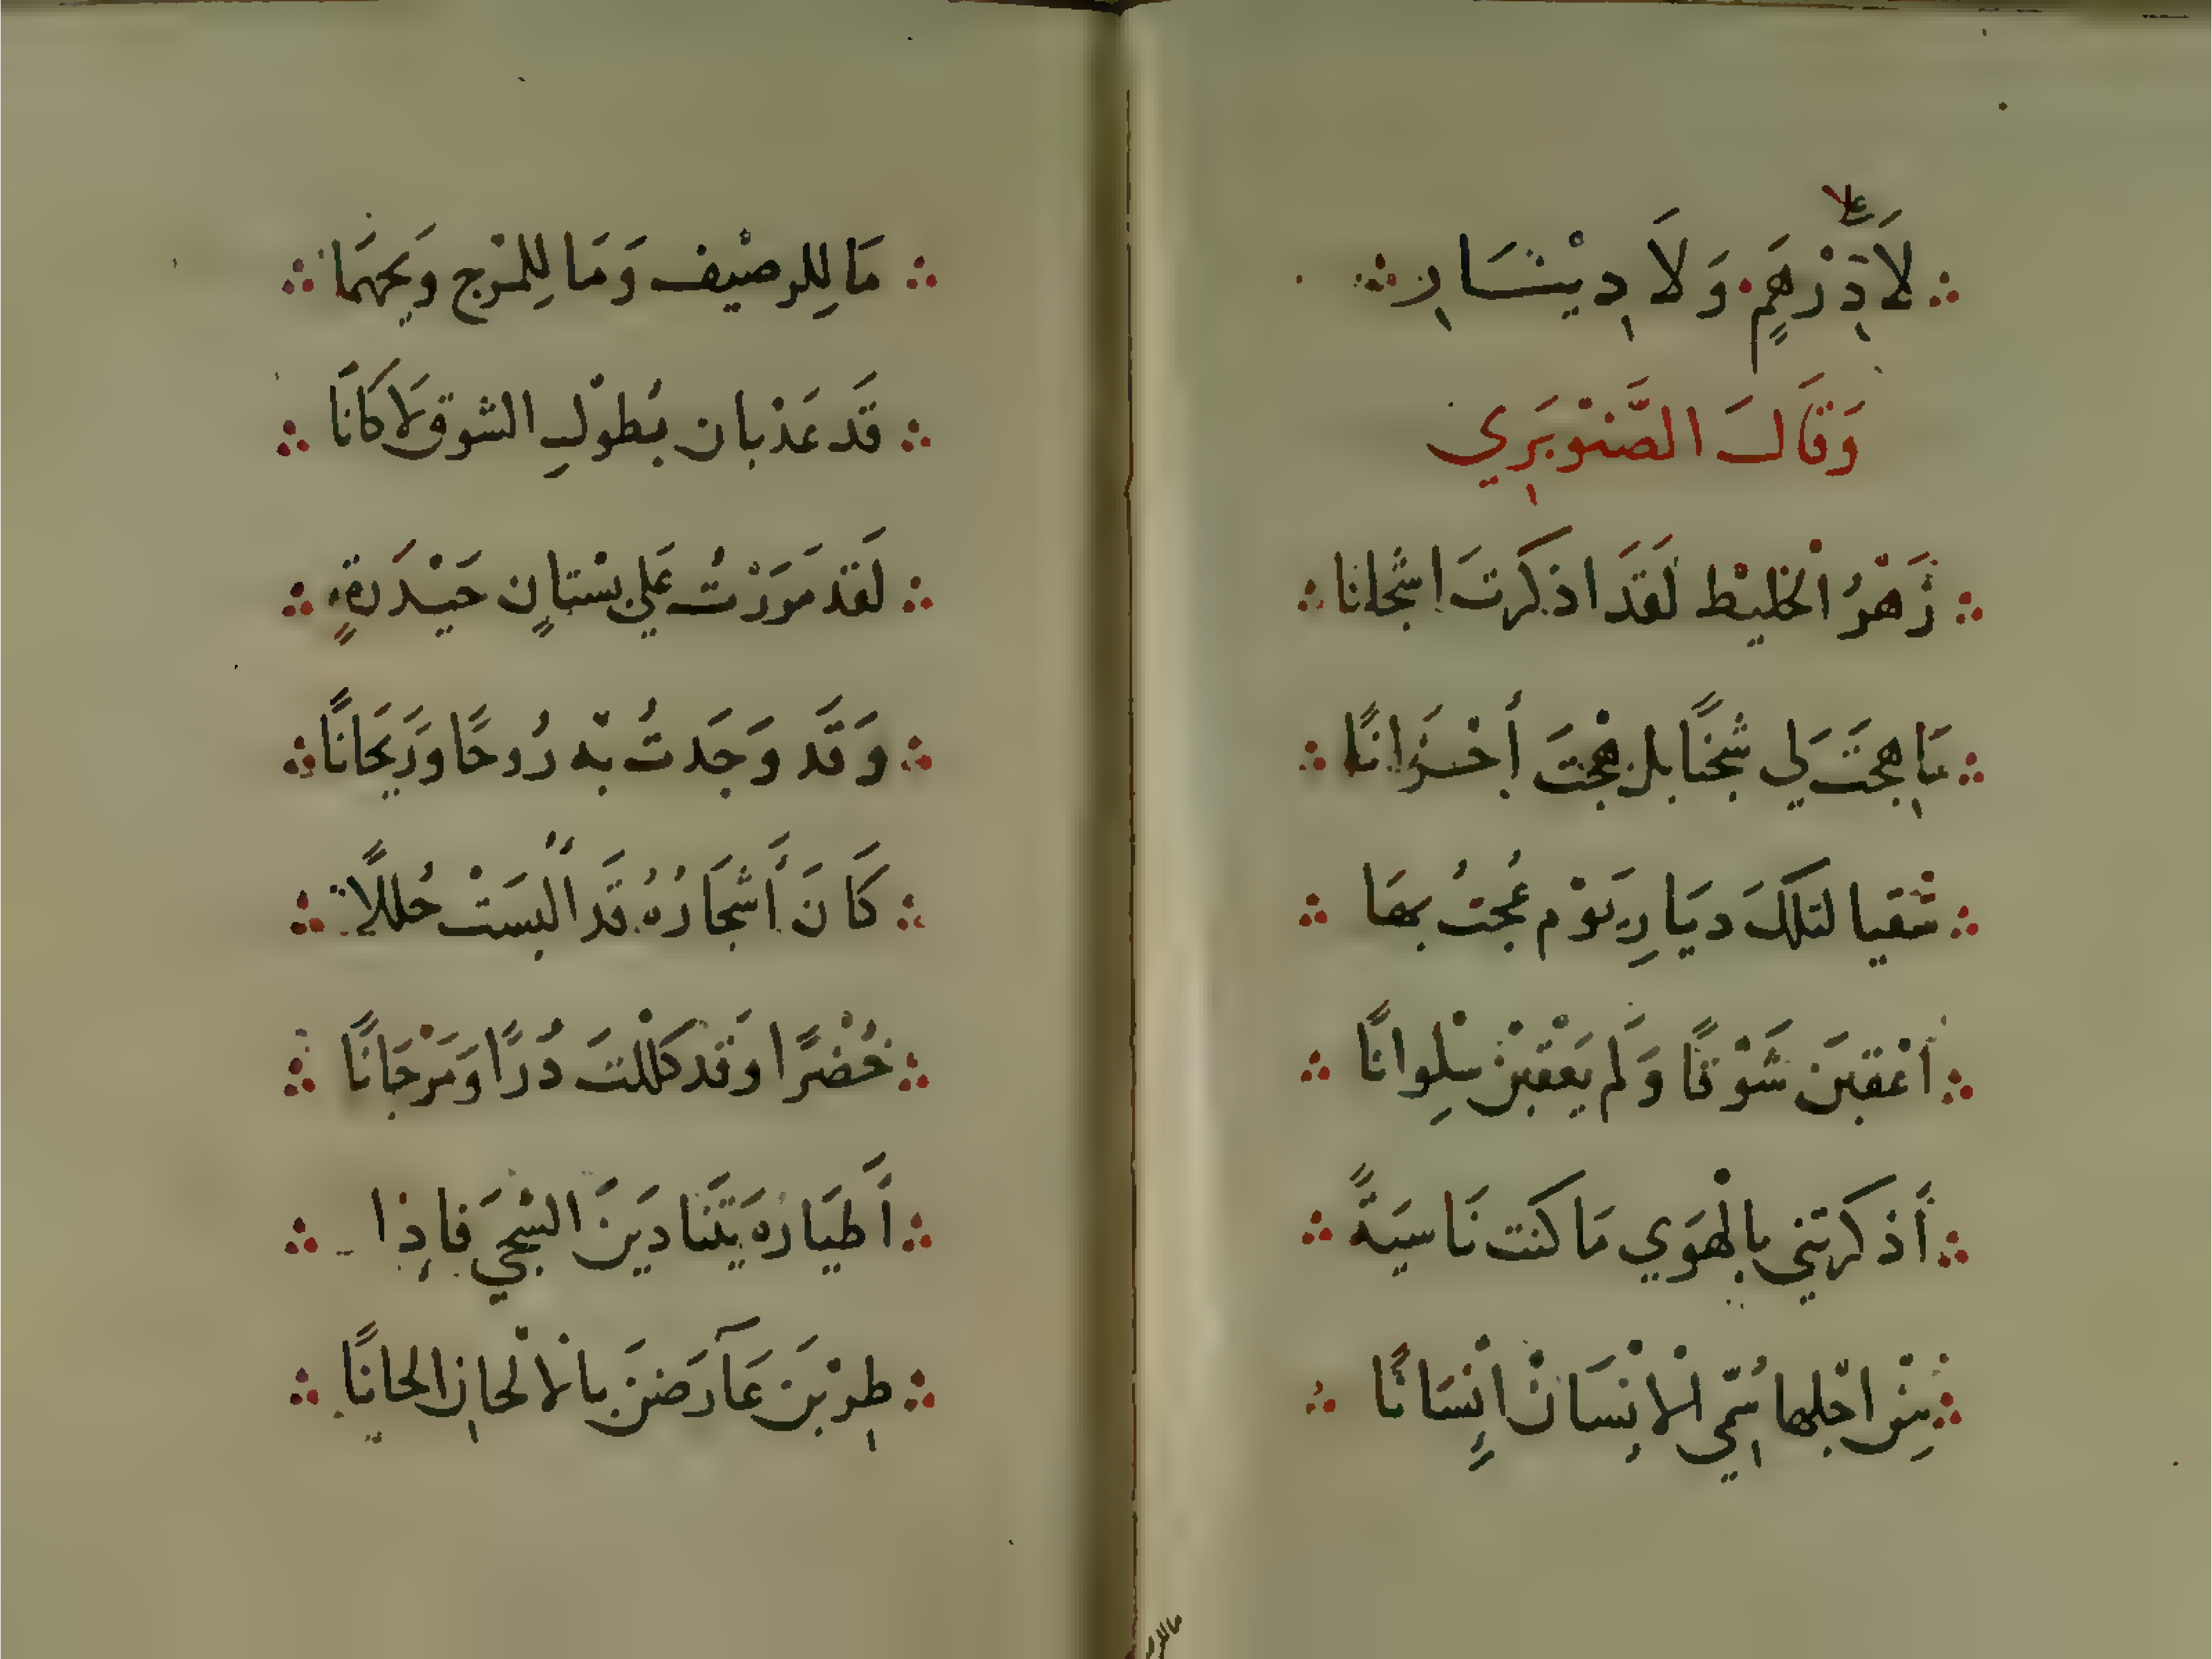 علا
لَا دِرْهَمٍ وَلَا دِيْنَارِ
وَقَالَ الصَّنَوبَرِي
زَهْرُ الخَليْط لَقَدَ اذكرتَ اشجانا
مَا هِجتَ لي شجنًا بل هْجتَ أحْزَانًا
سُقيا لتلكَ ديَارِ يَوْم عُجتُ بهَا
أعْقبَن شَوْقًا وَلَم يَعْقبْنْ سْلِوانًا
أَذكرتني بالْهَوَي مَا كنت نَاسيَةً
مِنْ اجْلِها سُمّي الْانْسَانْ انْسَانًا
مَا لِلرصْيف وَمَا لِلمْرج وَيحهمَا
قَد عَذْبان بُطوْلِ الشوق لَا كَانَا
لَقَد مَرَرْتُ عَلي بسْتانٍ حَيْدَرةٍ
وَقَد وَجَدتُ بْه رُوحًا وَرَيحَانًا
كَانَ أَشجَارُهُ قَد الْبسَتْ حُللًا
خُضْرًا وَقد كللْتَ دُرًا وَمَرْجَانًا
أَطيَارهَ يَتَنَاديَنَ الشْجيَ فاذِا
طِرْبَن عَآرَضنَ بالْالْحانِ الحانًا
مالل